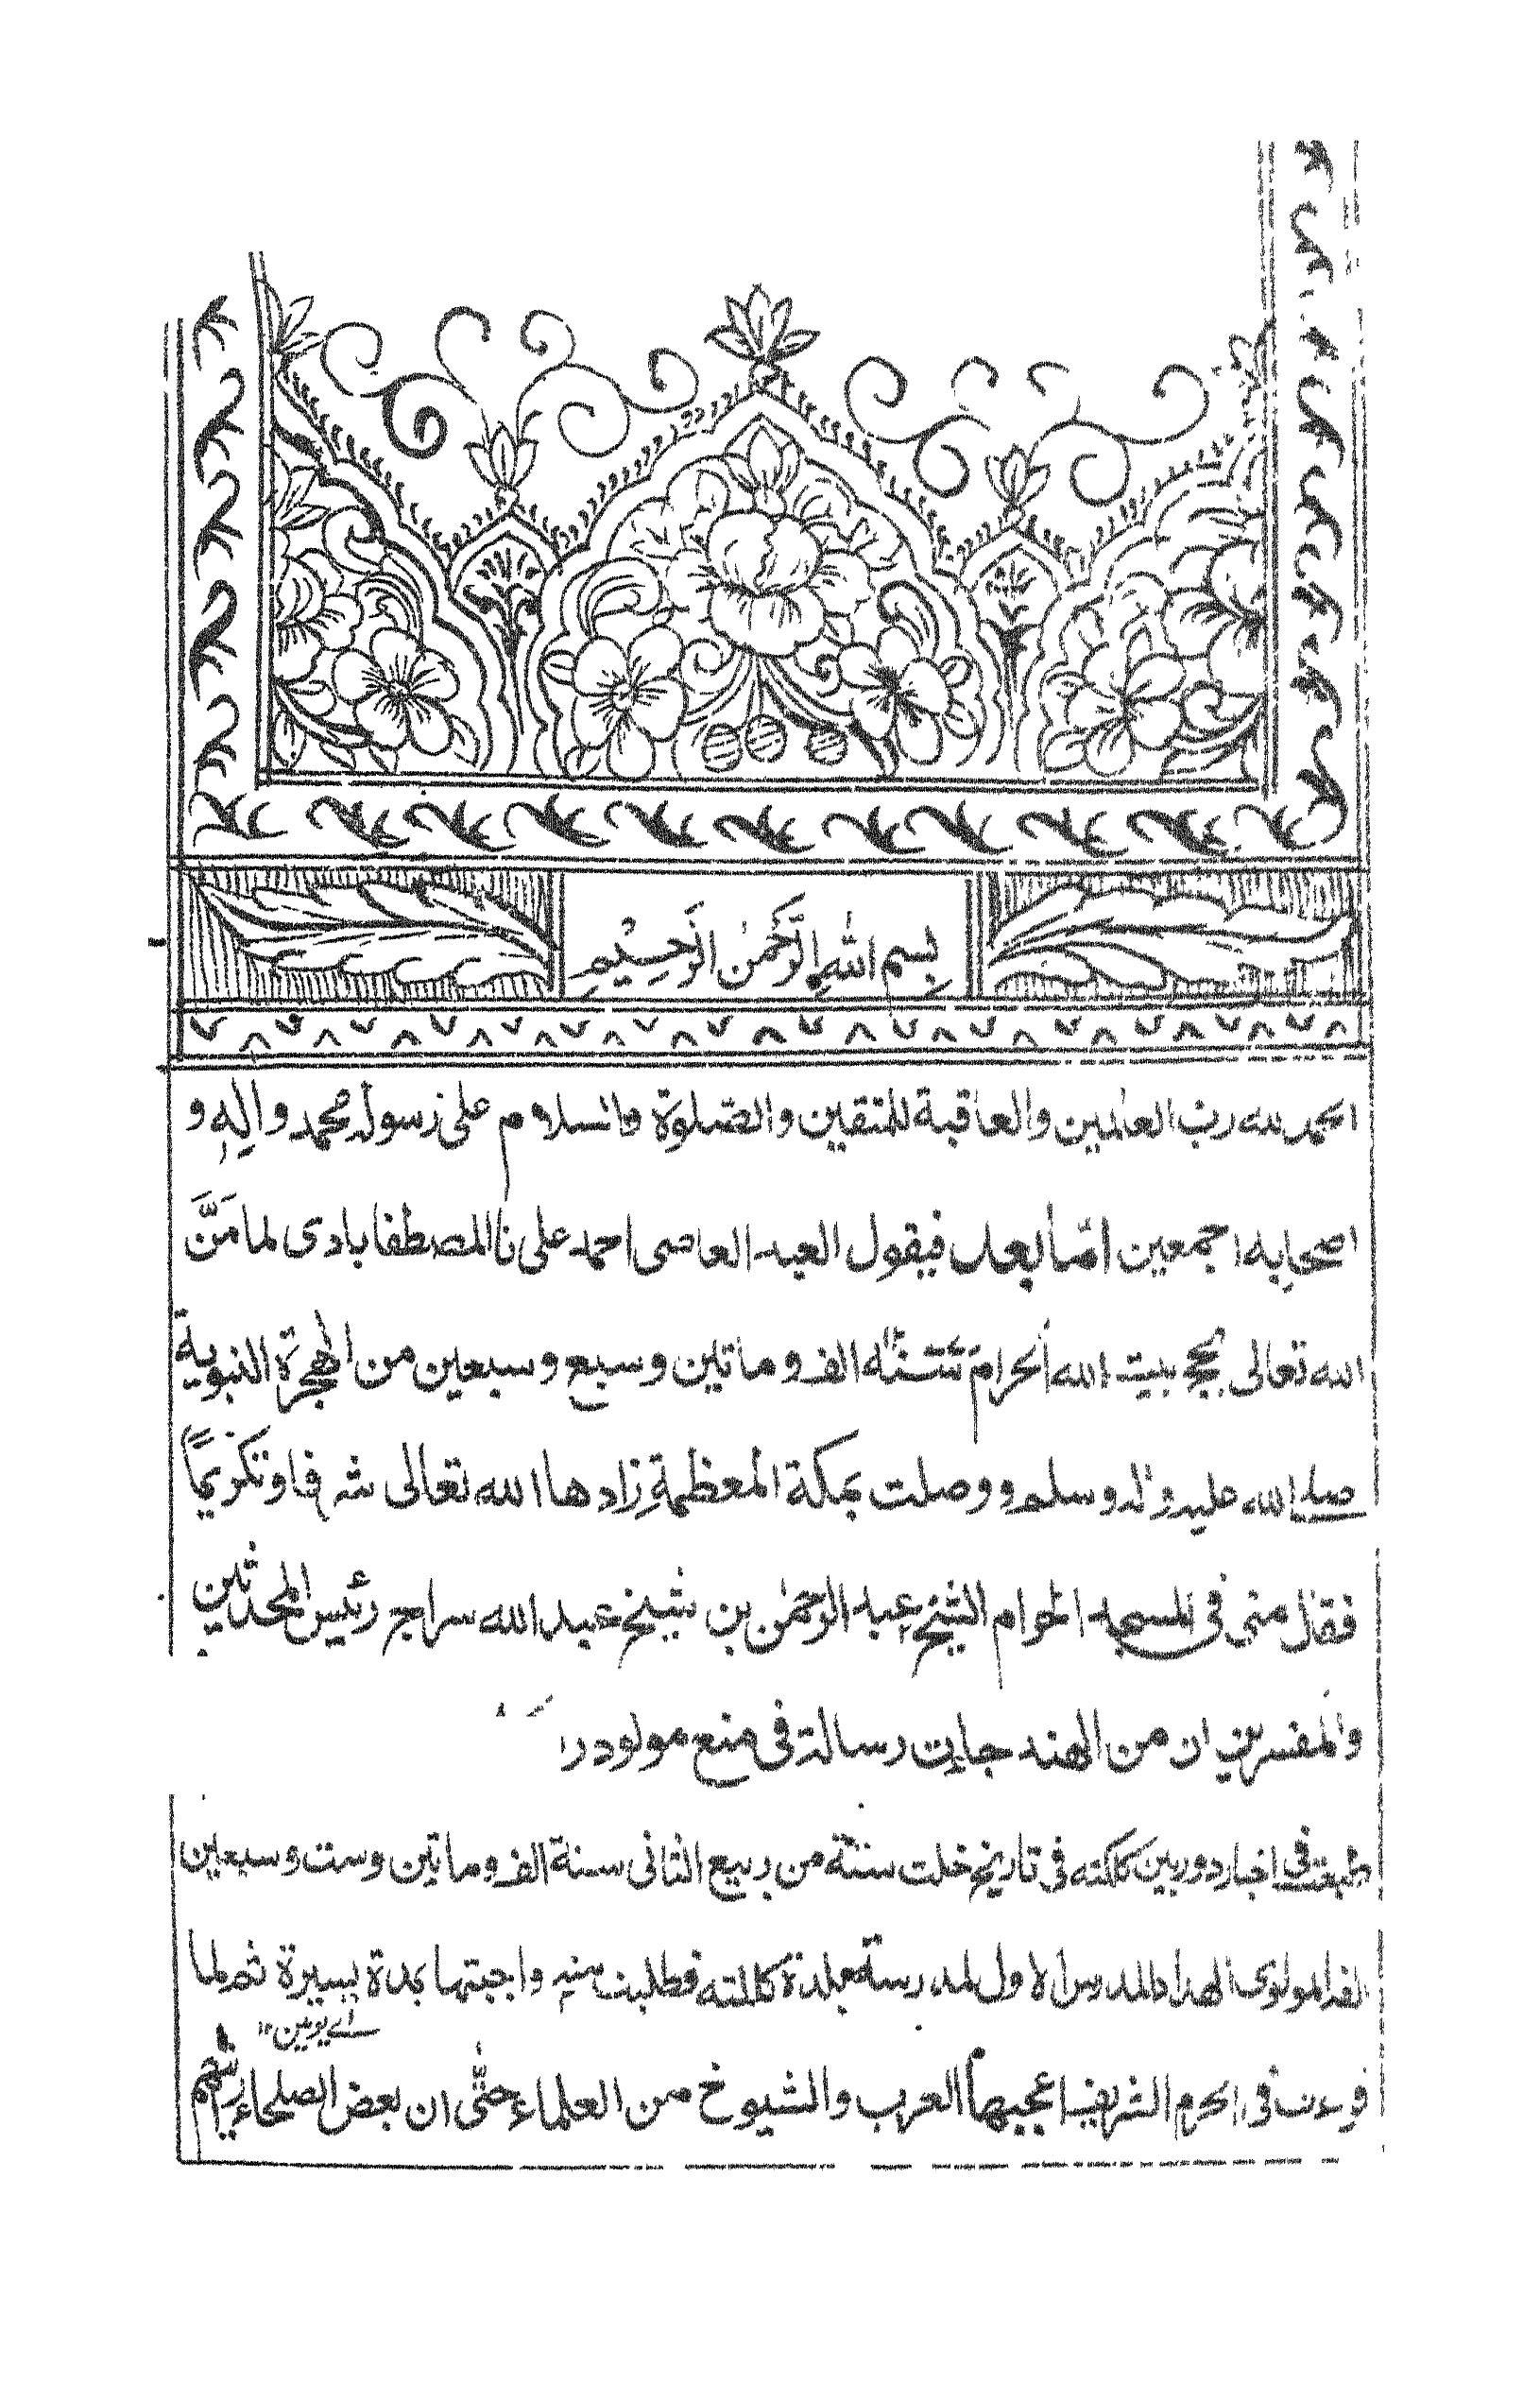 بسم الله الرحمن الرحيم
الحمد لله رب العالمين والعاقبة للمتقين والصلوة والسلام على رسوله محمد واله و
اصحابه اجمعين اما بعد فيقول العبد العاصى احمد على نا المصطفابادى لما منَّ
الله تعالى بحج بيت الله الحرام سنة الف وماتين وسبع وسبعين من الهجرة النبوية
صلى الله عليه واله وسلم ووصلت بمكة المعظمة زادها الله تعالى شرفا وتكريمًا
فقال منى فى المسجد الحرام الشيخ عبد الرحمن بن شيخ عبد الله سراج رئيس المحدثين
والمفسرين ان من الهند جاءت رسالة فى منع مولود
طبعت فى اخبار دوربين كلكته فى تاريخ خلت ستة من ربيع الثانى سنة الف وماتين وست وسبعين
المولوى المدرس الاول لمدرسة بلدة كلكته فطلبت منه واجبتها بمدة يسيرة ثم لما
اے يومين ١٢
فى الحرم الشريف اعجبها العرب والشيوخ من العلماء حتى ان بعض الصلحاء